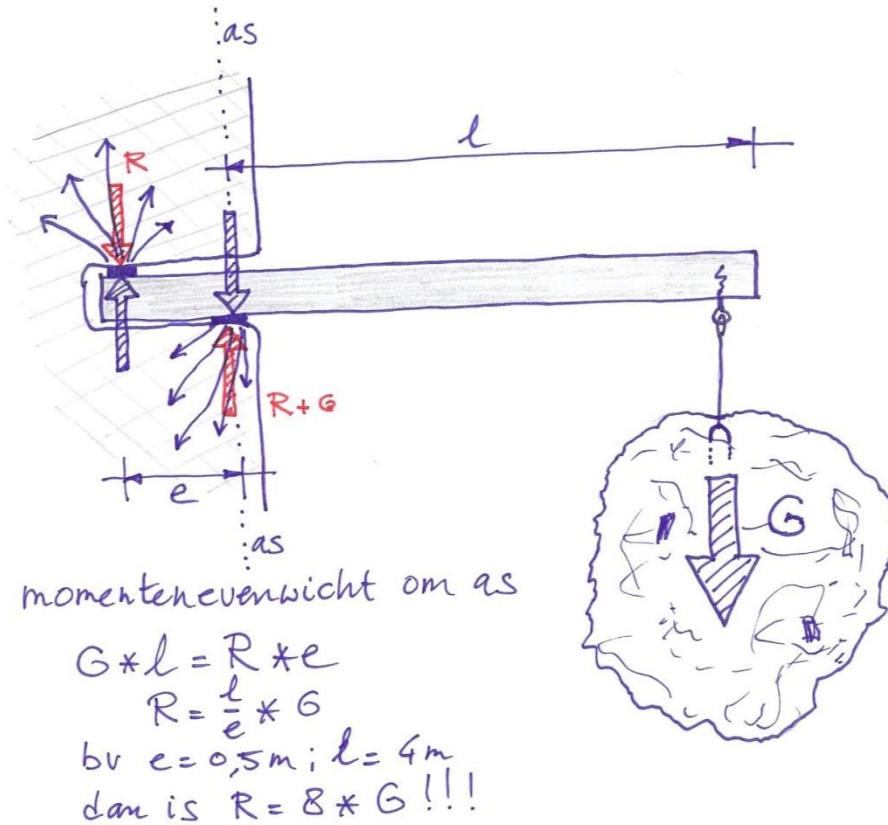 as
l
R
R+G
e
as
G
momentenevenwicht om as
G*l = R*e
R = l/e * G
bv e=0,5m; l= 4m
dan is R = 8 * G!!!